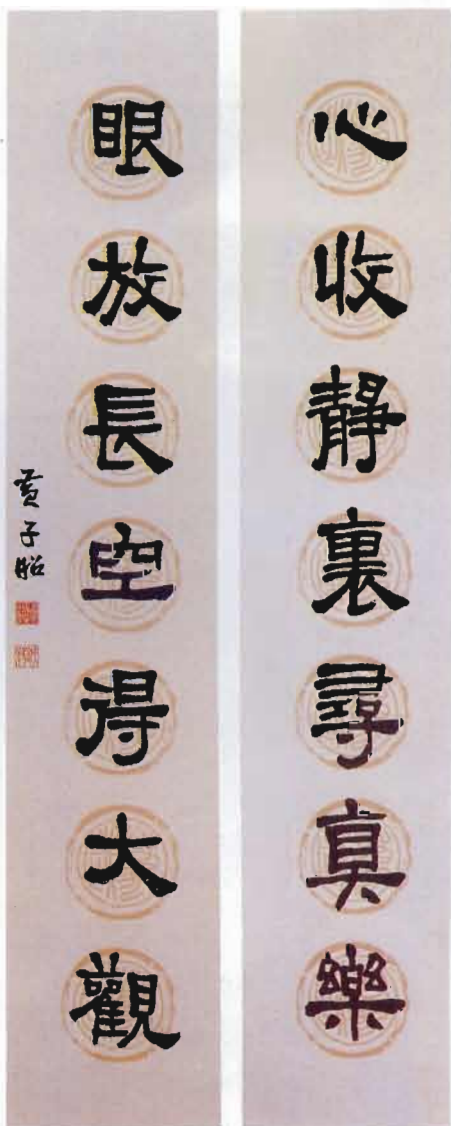 心收靜裏尋真樂
眼放長空得大觀
黃子昭